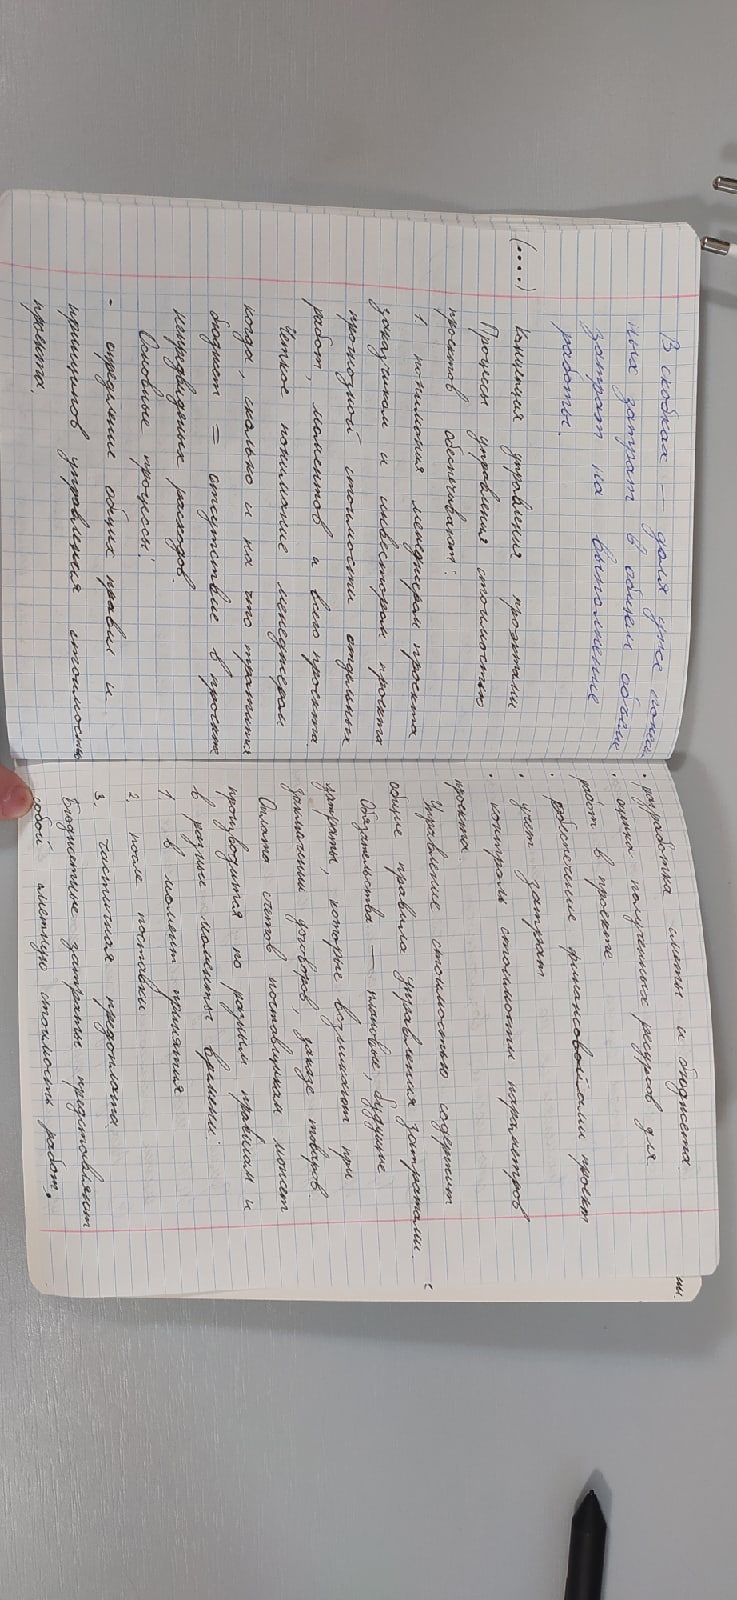 В скобках — доля уже понесен
ных затрат в общем объёме
затрат на выполнение
работы.
(....) Концепция управления проэктами
Процессы управления стоимостью
проектов обеспечивают:
1. понимания менеджером проекта
заказчиком и инвестором проекта
прогнозной стоимости отдельных
работ, моментов и всего проекта.
Четкое понимание менеджером
когда, сколько и на что тратится
бюджет = отсутствие в проекте
непредвиденых расходов.
Основные процессы:
- определение общих правил и
принципов управления стоимостью
проекта.
• разработка сметы и бюджета
• оценка полученных ресурсов для
работ в проекте
• обеспечение финансами проект
• учет затрат
• контроль стоимости параметров
проекта.
Управление стоимостью содержит
общие правила управления затратами.
Обязательства — плановые, будущие
затраты, которые возникают при
заключении договоров, заказе товаров.
Оплата счетов поставщикам может
производится по разным правилам и
в разные моменты времени:
1. в момент принятия
2. после поставки
3. частичная предоплата.
Бюджетные затраты представляют
собой сметную стоимость работ.